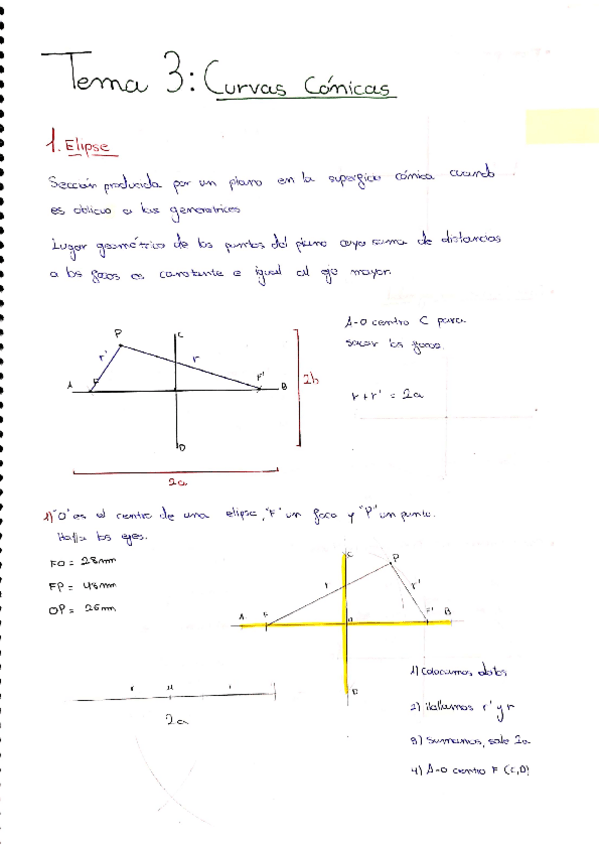 Tema 3: Curvas Cónicas
1. Elipse
Sección producida por un plano en la superficie cónica cuando
es oblicuo a las generatrices
Lugar geométrico de los puntos del plano cuya suma de distancias
a los focos es constante e igual al eje mayor.
A-O centro C para
sacar los focos.
P
C
r'
r
A
F
F'
B
2b
r + r' = 2a
D
2a
1) "O" es el centro de una elipse, "F" un foco y "P" un punto.
Halla los ejes.
FO = 28mm
FP = 48mm
OP = 26mm
C
P
r
r'
A
F
F'
B
D
2a
1) Colocamos datos
2) Hallamos r' y r
3) Sumamos, sale 2a
4) A-O centro F (C,D)